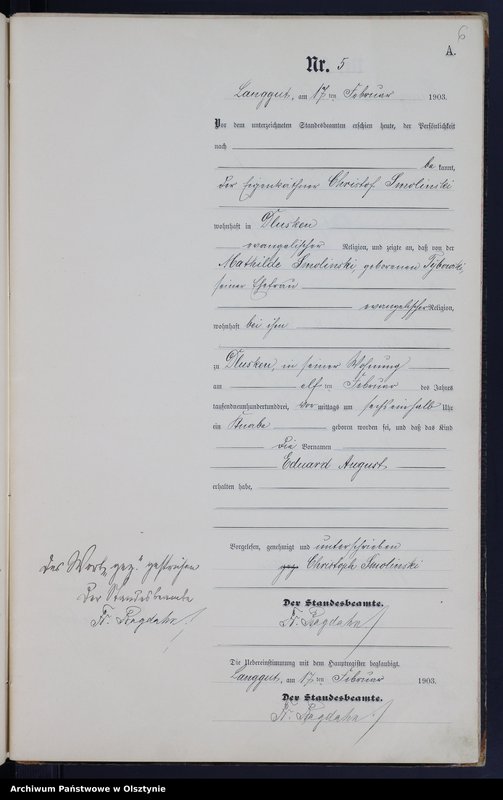 6
A.
Nr. 5
Langgut, am 17 ten Februar 1903.
Vor dem unterzeichneten Standesbeamten erschien heute, der Persönlichkeit
nach
be kannt,
der Eigenkäthner Christof Smolinski
wohnhaft in Dlusken
evangelischer Religion, und zeigte an, daß von der
Mathilde Smolinski, geborenen
seiner Ehefrau
evangelischer Religion,
wohnhaft bei ihm
zu Dlusken, in seiner Wohnung
am elf ten Februar des Jahres
tausendneunhundertunddrei, Vor mittags um sechseinhalb Uhr
ein Knabe geboren worden sei, und daß das Kind
die Vornamen
Eduard August
erhalten habe,
Vorgelesen, genehmigt und unterschrieben
gez. Christoph Smolinski
Das Wort „gez." gestrichen
Der Standesbeamte
Der Standesbeamte.
Die Uebereinstimmung mit dem Hauptregister beglaubigt.
Langgut, am 17 ten Februar 1903.
Der Standesbeamte.
Archiwum Państwowe w Olsztynie